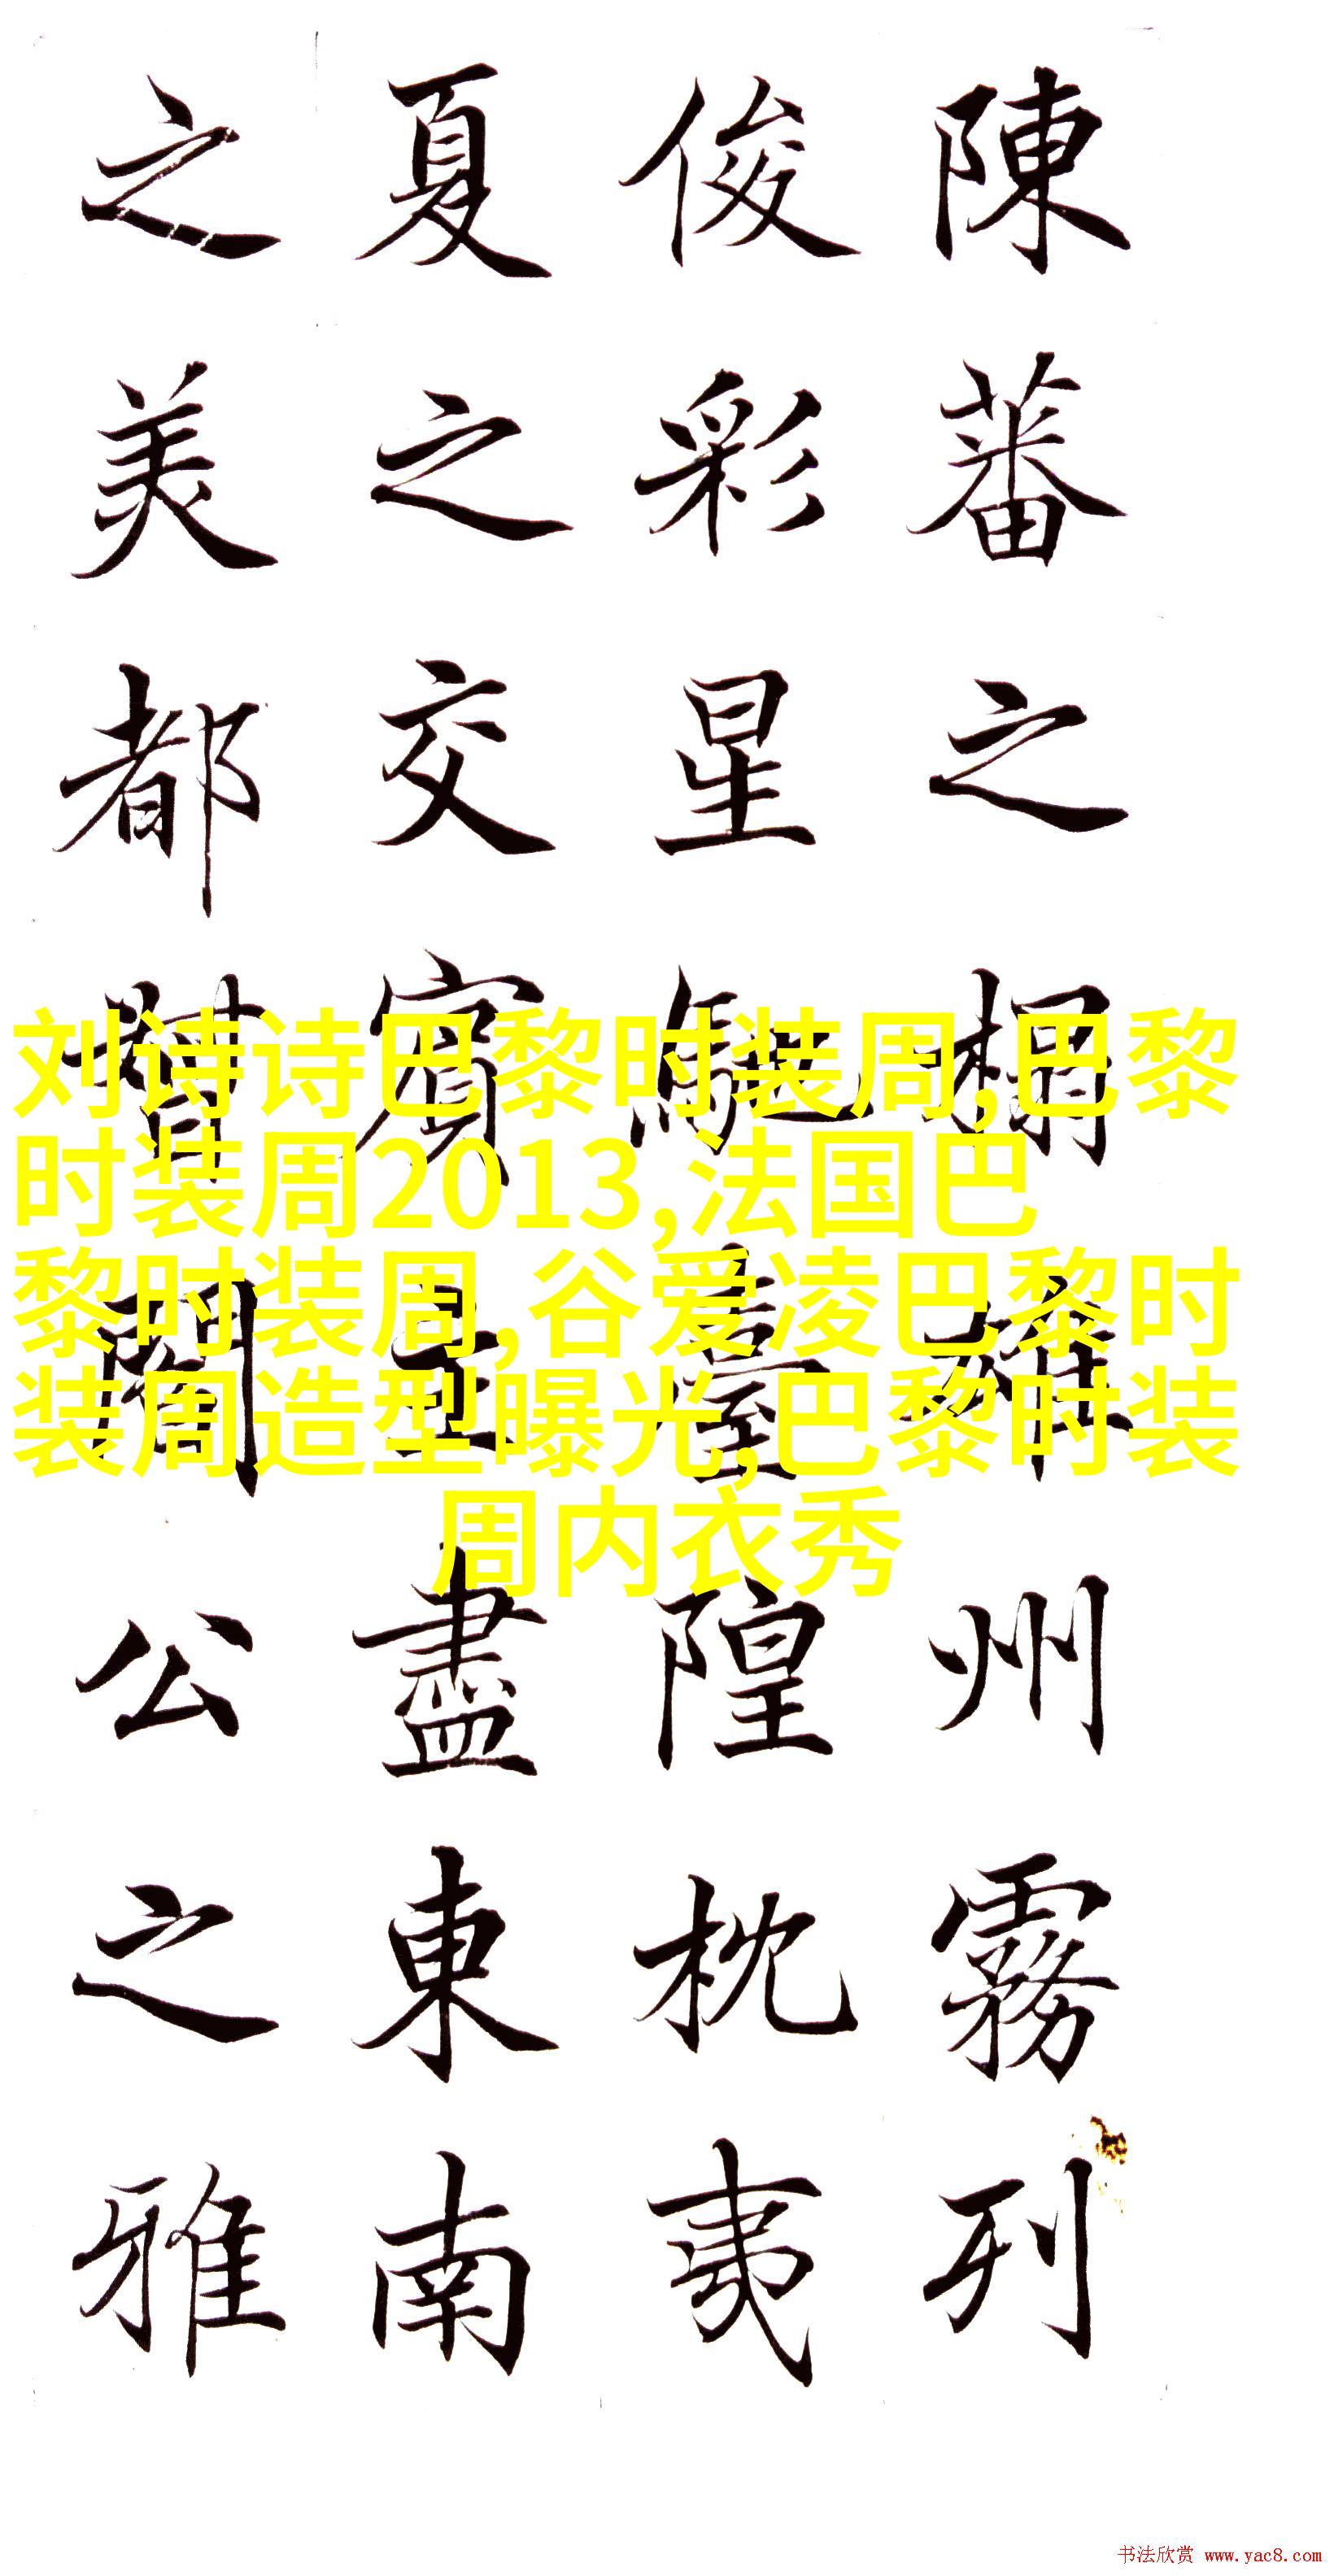 陳蕃之榻雄州霧列
俊彩星馳臺隍枕夷
夏之交賓主盡東南
之美都督閻公之雅
刘诗诗巴黎时装周,巴黎
时装周2013,法国巴
黎时装周,谷爱凌巴黎时
装周造型曝光,巴黎时装
周内衣秀
书法欣赏 www.yac8.com